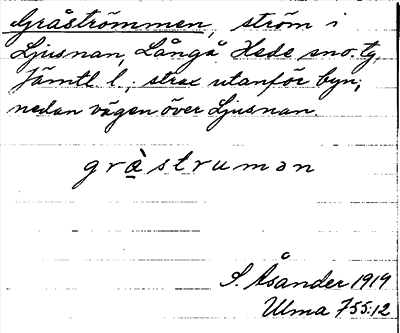 Gråströmmen, ström i
Ljusnan, Långå Hede sno. tg,
Jämtl l.; strax utanför byn,
nedan vägen över Ljusnan.
grà̠strumən
S. Åsander 1919
Ulma 755:12